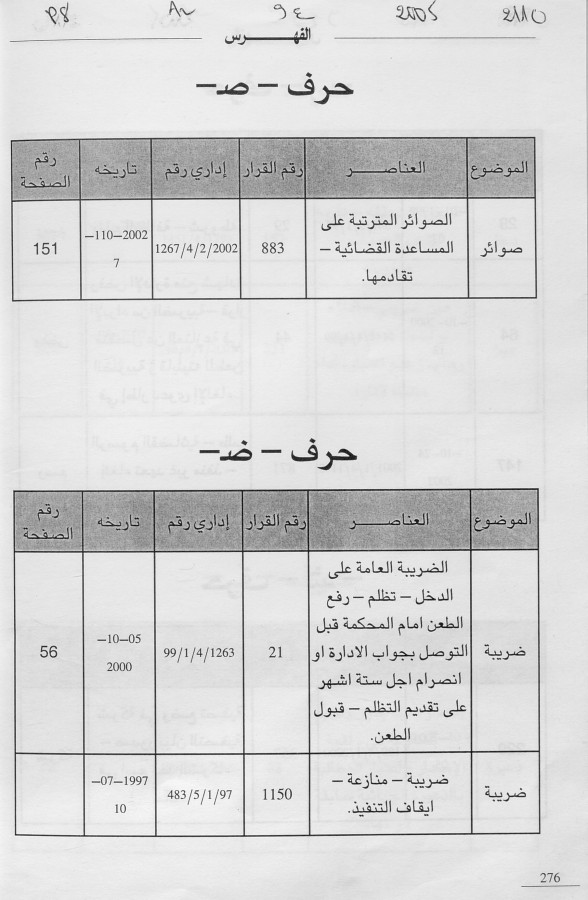 P8 Ar 9ع 2005 2110
الفهـــرس
حرف – صـ–
الموضوع العناصــــر رقم القرار إداري رقم تاريخه رقم الصفحة
صوائر الصوائر المترتبة على 883 1267/4/2/2002 2002–110– 151
المساعدة القضائية – 7
تقادمها.
حرف – ضـ–
الموضوع العناصــــر رقم القرار إداري رقم تاريخه رقم الصفحة
ضريبة الضريبة العامة على 21 99/1/4/1263 05–10– 56
الدخل – تظلم – رفع 2000
الطعن امام المحكمة قبل
التوصل بجواب الادارة او
انصرام اجل ستة اشهر
على تقديم التظلم – قبول
الطعن.
ضريبة ضريبة – منازعة – 1150 483/5/1/97 1997–07–
ايقاف التنفيذ. 10
276